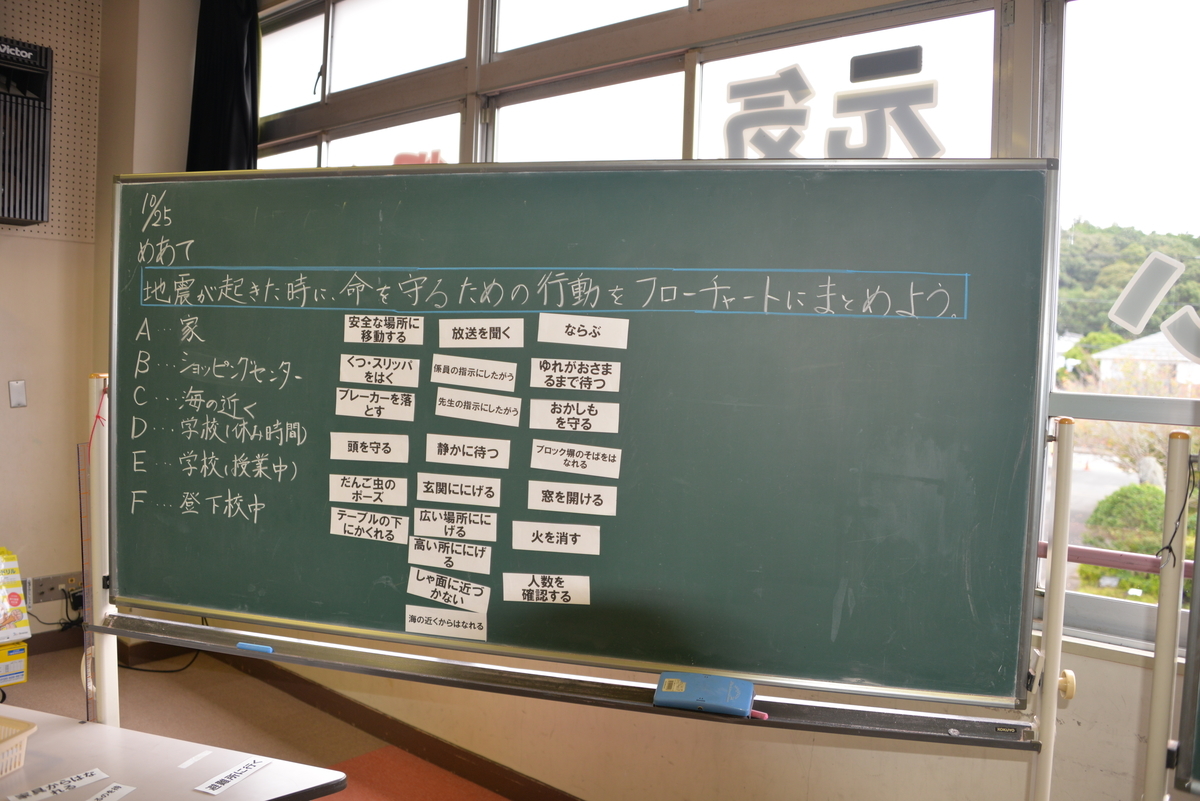 Victor
元気
10/25
めあて
地震が起きた時に、命を守るための行動をフローチャートにまとめよう。
A…家
B…ショッピングセンター
C…海の近く
D…学校(休み時間)
E…学校(授業中)
F…登下校中
安全な場所に
移動する
くつ・スリッパ
をはく
ブレーカーを落
とす
頭を守る
だんご虫の
ポーズ
テーブルの下
にかくれる
放送を聞く
係員の指示にしたがう
先生の指示にしたがう
静かに待つ
玄関ににげる
広い場所ににげる
高い所ににげる
しゃ面に近づ
かない
海の近くからはなれる
ならぶ
ゆれがおさま
るまで待つ
おかしも
を守る
ブロック塀のそばをは
なれる
窓を開ける
火を消す
人数を
確認する
避難所に行く